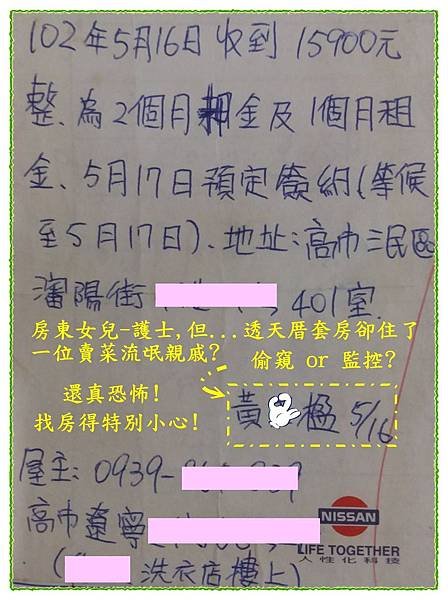 102年5月16日收到15900元
整、為2個月押金及1個月租
金、5月17日預定簽約(等候
至5月17日)、地址:高市三民區
瀋陽街 401室.
房東女兒-護士,但...透天厝套房卻住了
一位賣菜流氓親戚? 偷窺 or 監控?
還真恐怖!
找房得特別小心!
黃 楹 5/16
屋主: 0939-
高市遼寧
( 洗衣店樓上)
NISSAN
LIFE TOGETHER
人性化科技